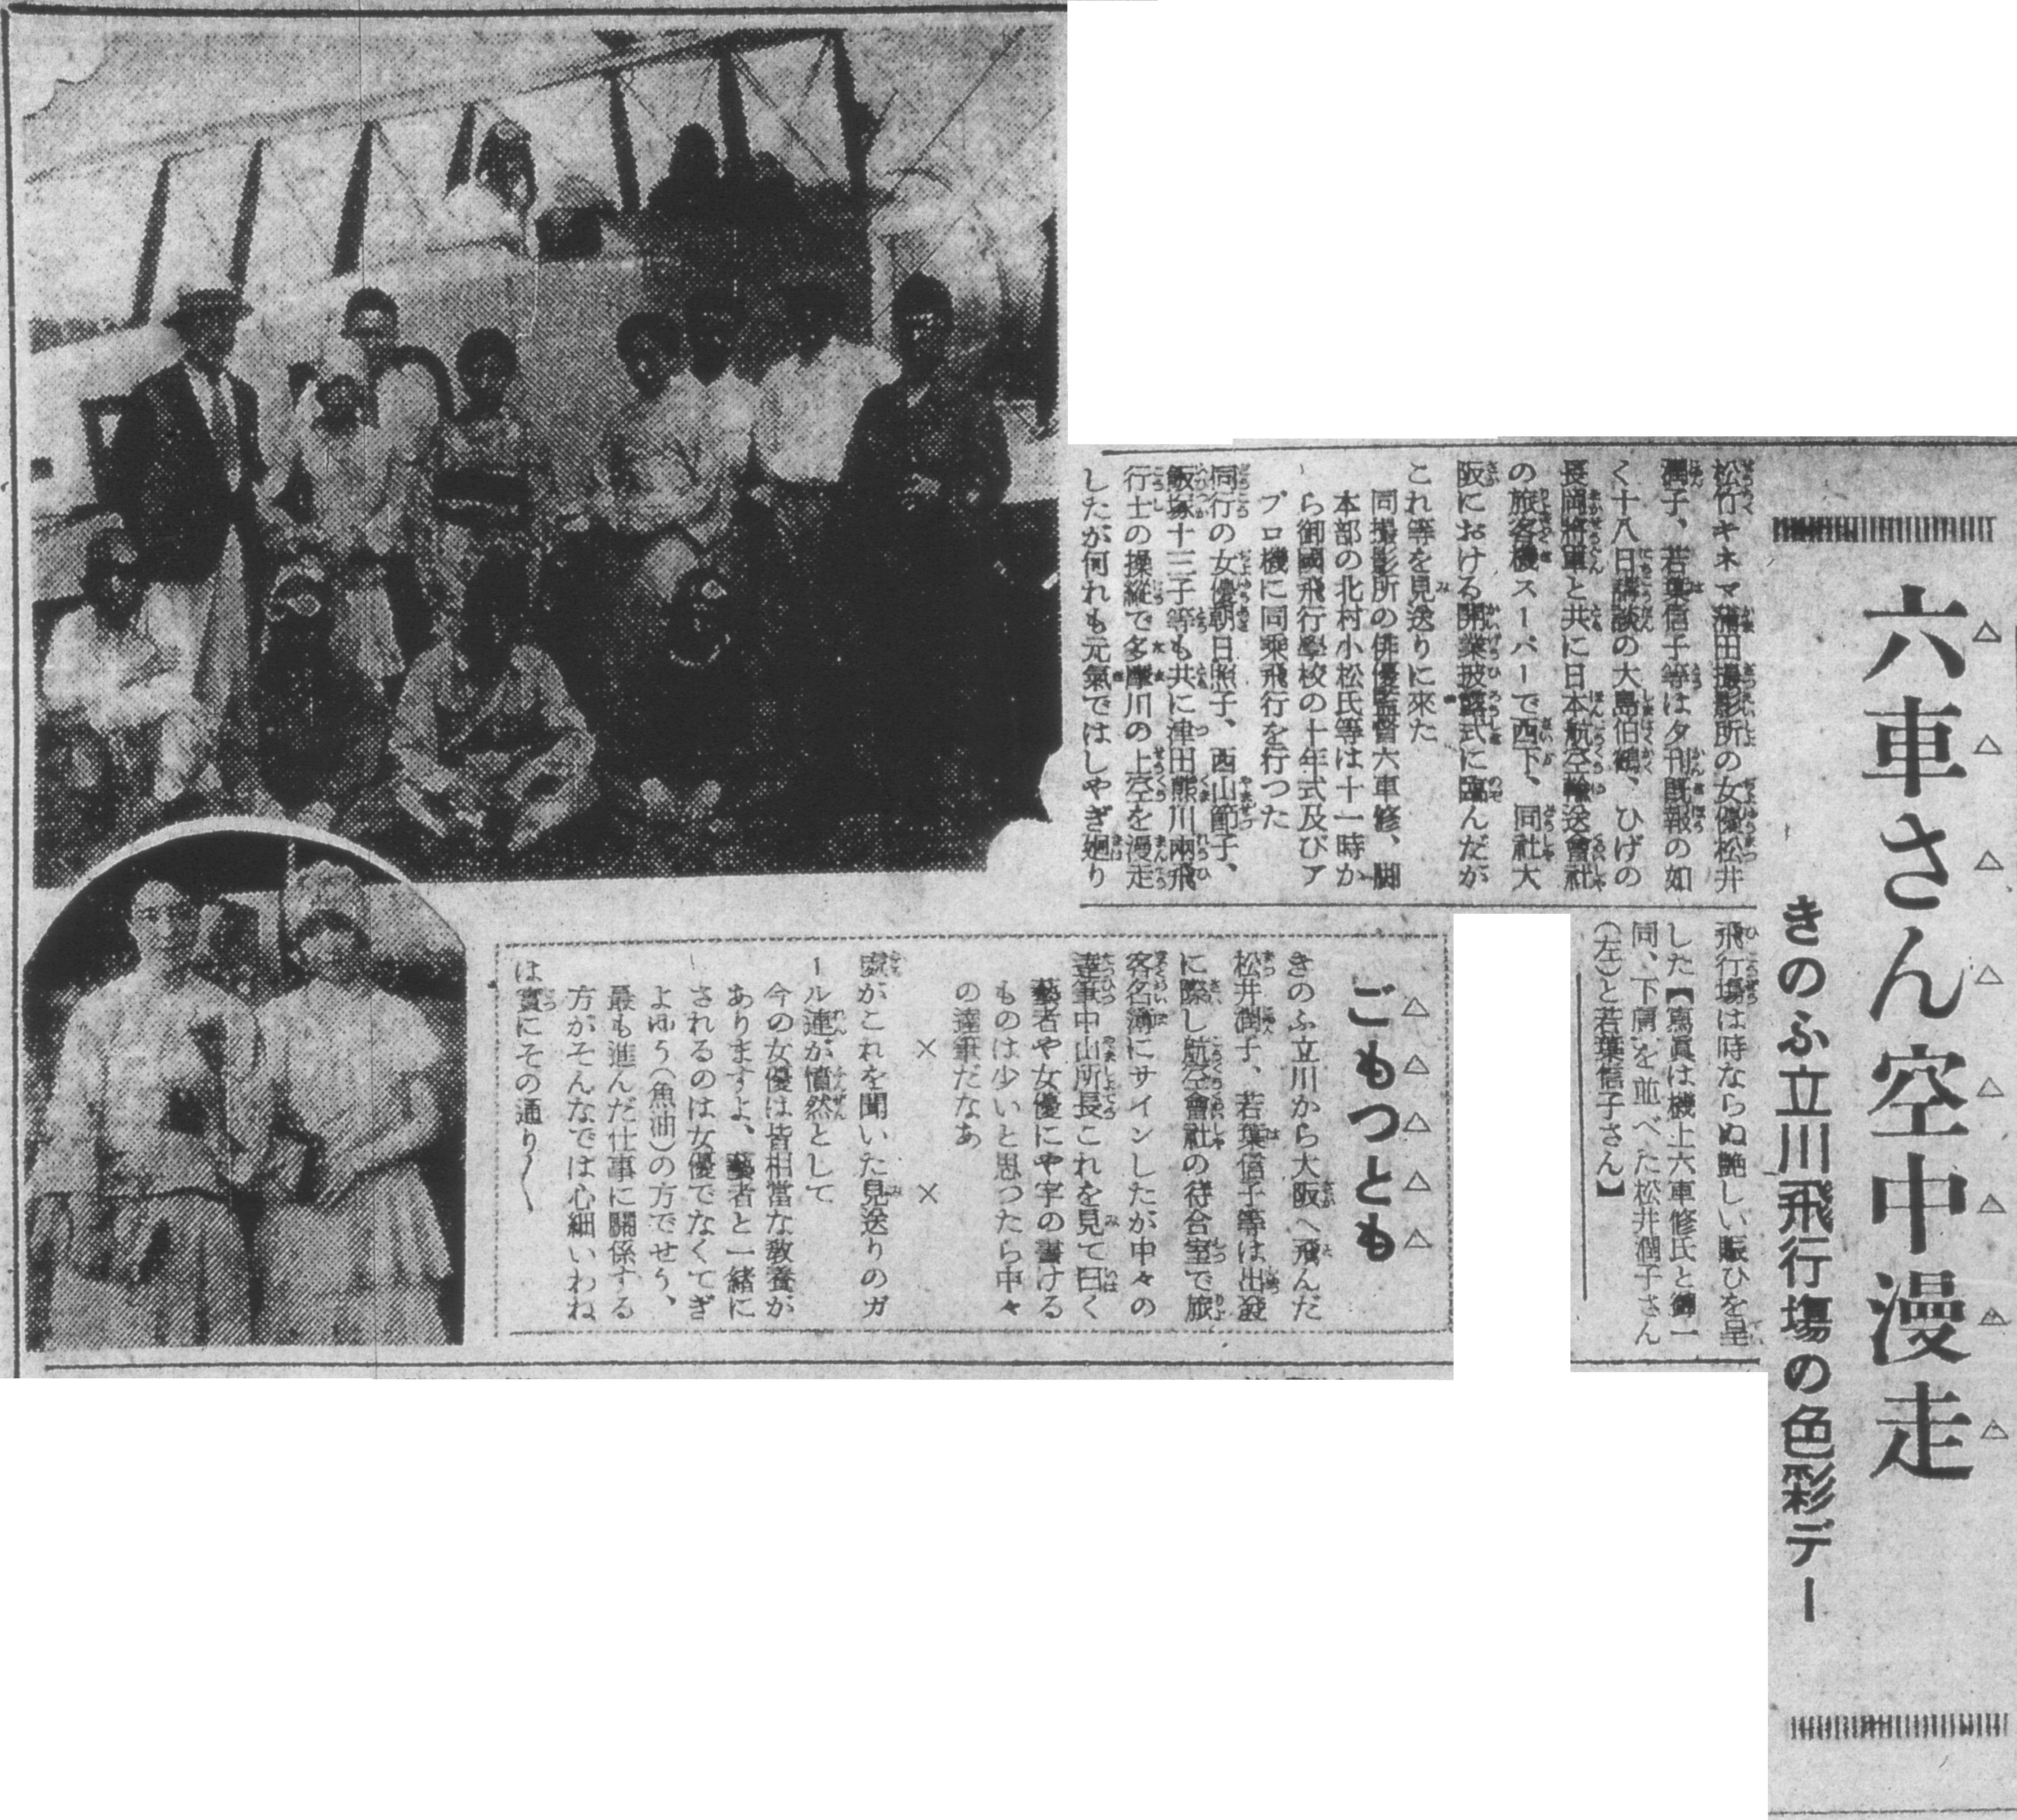 六車さん空中漫走
きのふ立川飛行場の色彩デー
松竹キネマ蒲田撮影所の女優松井
潤子、若葉信子等は夕刊既報の如
く十八日講談の大島伯鶴、ひげの
長岡將軍と共に日本航空輸送會社
の旅客機スーパーで西下、同社大
阪における開業披露式に臨んだが
これ等を見送りに來た
同撮影所の俳優監督六車修、脚
本部の北村小松氏等は十一時か
ら御國飛行學校の十年式及びア
ブロ機に同乘飛行を行つた
同行の女優朝日照子、西山節子、
飯塚十三子等も共に津田熊川兩飛
行士の操縦で多摩川の上空を漫走
したが何れも元氣ではしやぎ廻り
飛行場は時ならぬ艶しい賑ひを呈
した【寫眞は機上六車修氏と御一
同、下肩を並べた松井潤子さん
(左)と若葉信子さん】
ごもつとも
きのふ立川から大阪へ飛んだ
松井潤子、若葉信子等は出發
に際し航空會社の待合室で旅
客名簿にサインしたが中々の
達筆中山所長これを見て曰く
藝者や女優にや字の書ける
ものは少いと思つたら中々
の達筆だなあ
× ×
處がこれを聞いた見送りのガ
ール連が憤然として
今の女優は皆相當な教養が
ありますよ、藝者と一緒に
されるのは女優でなくてぎ
よゆう(魚油)の方でせう、
最も進んだ仕事に關係する
方がそんなでは心細いわね
は實にその通り〱